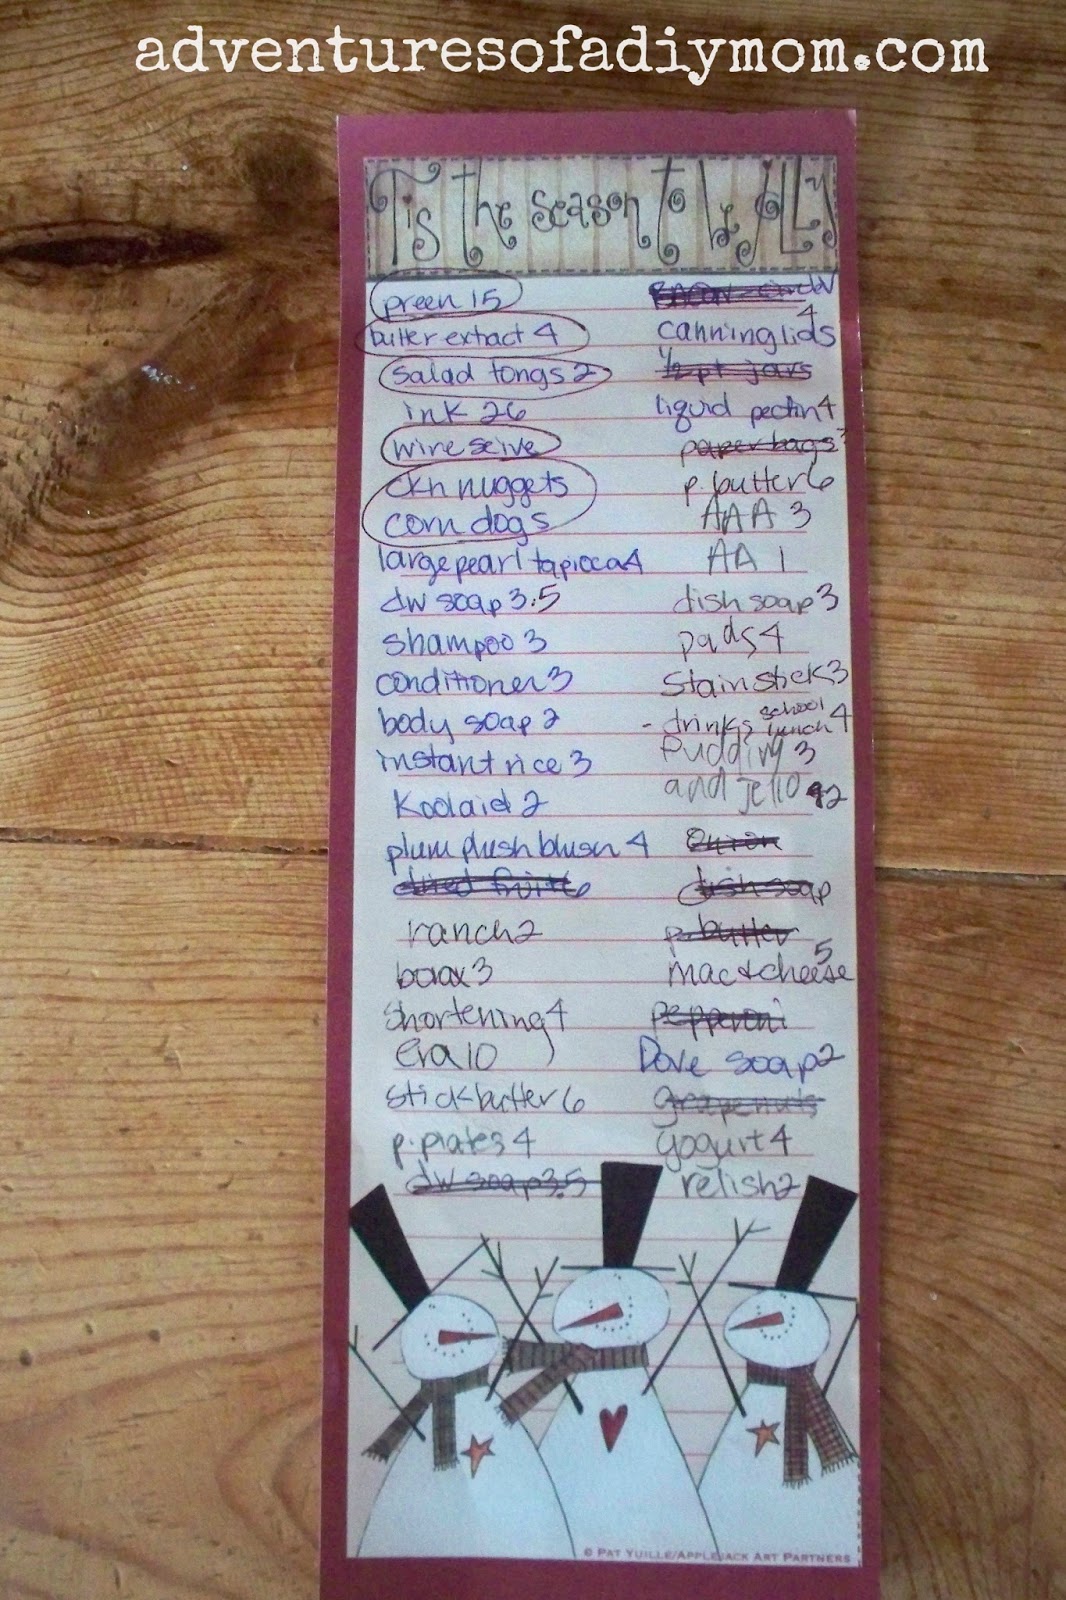 adventuresofadiymom.com
'Tis the season to be jolly
preen 15
butter extract 4
salad tongs 2
ink 26
wire seive
ckn nuggets
corn dogs
large pearl tapioca 4
dw soap 3.5
shampoo 3
conditioner 3
body soap 2
instant rice 3
Koolaid 2
plum plush blush 4
dried fruit 6
ranch 2
borax 3
shortening 4
era 10
stick butter 6
p. plates 4
dw soap 3.5
4
canning lids
1/2 pt jars
liquid pectin 4
paper bags
p. butter 6
AAA 3
AA 1
dish soap 3
pads 4
Stain stick 3
- drinks school lunch 4
Pudding 3
and jello 2
Onion
dish soap
p. butter
5
mac + cheese
pepperoni
Dove soap 2
grapenuts
yogurt 4
relish 2
© Pat Yuille/Applejack Art Partners